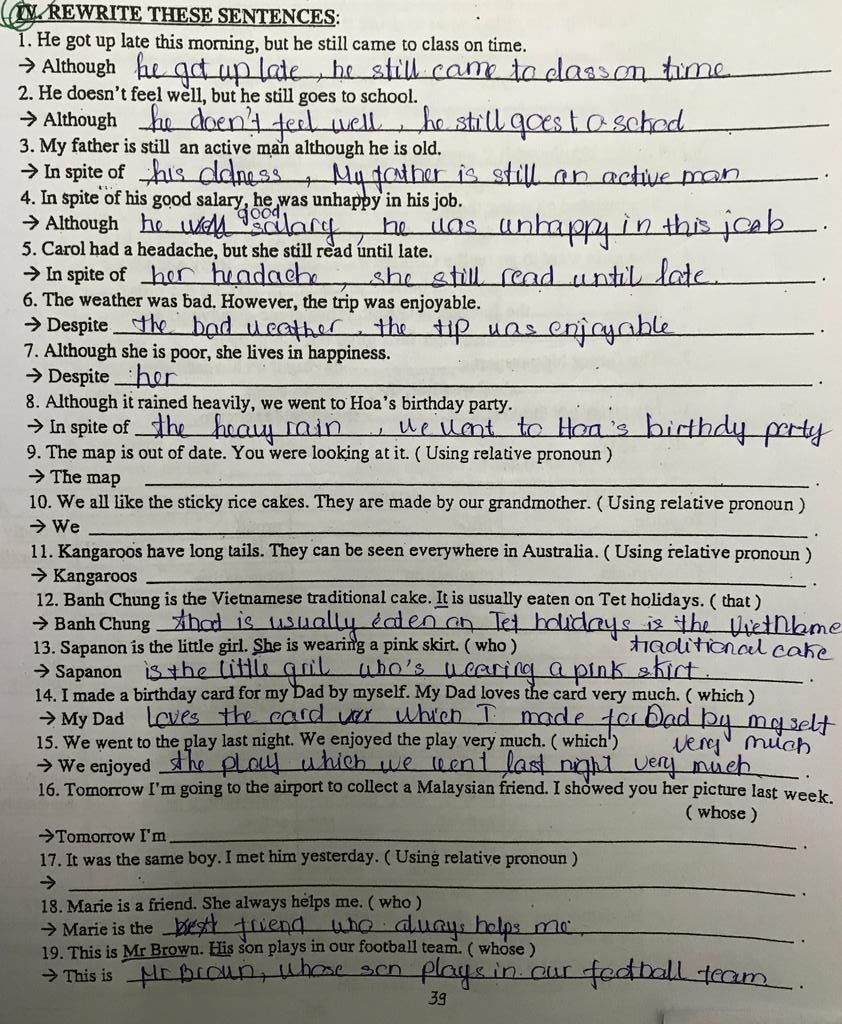 IV. REWRITE THESE SENTENCES:
1. He got up late this morning, but he still came to class on time.
→ Although he got up late, he still came to class on time
2. He doesn't feel well, but he still goes to school.
→ Although he doen't feel well, he still goes to school
3. My father is still an active man although he is old.
→ In spite of his oldness, My father is still an active man.
4. In spite of his good salary, he was unhappy in his job.
→ Although he good salary, he was unhappy in this job.
5. Carol had a headache, but she still read until late.
→ In spite of her headache, she still read until late.
6. The weather was bad. However, the trip was enjoyable.
→ Despite the bad weather, the tip was enjoyable.
7. Although she is poor, she lives in happiness.
→ Despite her.
8. Although it rained heavily, we went to Hoa's birthday party.
→ In spite of the heavy rain, we went to Hoa's birthdy party
9. The map is out of date. You were looking at it. ( Using relative pronoun )
→ The map.
10. We all like the sticky rice cakes. They are made by our grandmother. ( Using relative pronoun )
→ We.
11. Kangaroos have long tails. They can be seen everywhere in Australia. ( Using relative pronoun )
→ Kangaroos.
12. Banh Chung is the Vietnamese traditional cake. It is usually eaten on Tet holidays. ( that )
→ Banh Chung that is usually eaten on Tet holidays is the VietNbme
traditional cake
13. Sapanon is the little girl. She is wearing a pink skirt. ( who )
→ Sapanon is the little gril who's wearing a pink skirt.
14. I made a birthday card for my Dad by myself. My Dad loves the card very much. ( which )
→ My Dad loves the card which I made for Dad by myself
very much
15. We went to the play last night. We enjoyed the play very much. ( which )
→ We enjoyed the play which we went last night very much.
16. Tomorrow I'm going to the airport to collect a Malaysian friend. I showed you her picture last week.
( whose )
→Tomorrow I'm.
17. It was the same boy. I met him yesterday. ( Using relative pronoun )
→.
18. Marie is a friend. She always helps me. ( who )
→ Marie is the friend who always helps me.
19. This is Mr Brown. His son plays in our football team. ( whose )
→ This is Mr Brown, whose son plays in our football team.
39